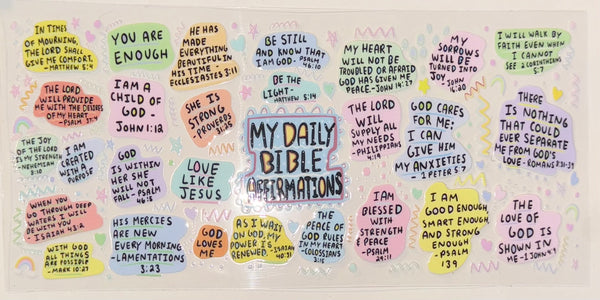 IN TIMES
OF MOURNING,
THE LORD SHALL
GIVE ME COMFORT.
-MATTHEW 5:4
YOU ARE
ENOUGH
HE HAS
MADE
EVERYTHING
BEAUTIFUL IN
HIS TIME -
ECCLESIASTES 3:11
BE STILL
AND KNOW THAT
I AM GOD. PSALM
46:10
MY HEART
WILL NOT BE
TROUBLED OR AFRAID
GOD HAS GIVEN ME
PEACE-JOHN 14:27
MY
SORROWS
WILL BE
TURNED INTO
JOY
JOHN
16:20
I WILL WALK BY
FAITH EVEN WHEN
I CANNOT
SEE 2 CORINTHIANS
5:7
THE LORD
WILL PROVIDE
ME WITH THE DESIRES
OF MY HEART.
-PSALM
I AM A
CHILD OF
GOD -
JOHN 1:12
SHE IS
STRONG
PROVERBS
31:25
BE THE
LIGHT-
MATTHEW 5:14
MY DAILY
BIBLE
AFFIRMATIONS
THE LORD
WILL
SUPPLY ALL
MY NEEDS
-PHILIPPIANS
4:19
GOD CARES
FOR ME:
I CAN
GIVE HIM
MY ANXIETIES
-1 PETER 5:7
THERE
IS NOTHING
THAT COULD
EVER SEPARATE
ME FROM GOD'S
LOVE-ROMANS 8:38-39
THE JOY
OF THE LORD
IS MY STRENGTH
-NEHEMIAH
8:10
I AM
CREATED
WITH A
PURPOSE
GOD
IS WITHIN
HER SHE
WILL NOT
FALL-PSALM
46:5
LOVE
LIKE
JESUS
WHEN YOU
GO THROUGH DEEP
WATERS I WILL
BE WITH YOU
-ISAIAH 43:2
WITH GOD
ALL THINGS
ARE POSSIBLE
-MARK 10:27
HIS MERCIES
ARE NEW
EVERY MORNING
-LAMENTATIONS
3:23
GOD
LOVES
ME
AS I WAIT
ON GOD, MY
POWER IS
RENEWED. -ISAIAH
40:31
THE
PEACE OF
GOD RULES
IN MY HEART
-COLOSSIANS
3:15
I AM
BLESSED
WITH
STRENGTH
& PEACE
-PSALM
29:11
I AM
GOOD ENOUGH,
SMART ENOUGH,
AND STRONG
ENOUGH
-PSALM
139
THE
LOVE OF
GOD IS
SHOWN IN
ME-1 JOHN